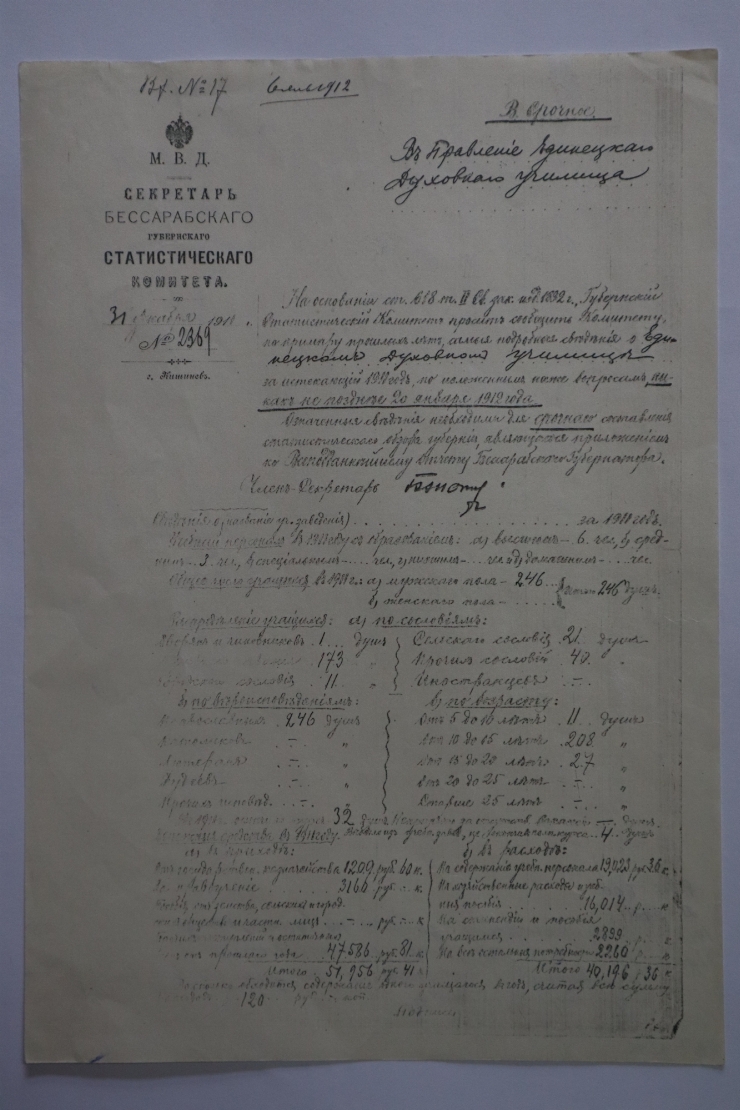 Вх. № 17
1912
В. Срочное.
Въ Правленіе Единецкаго
Духовнаго училища
М. В. Д.
СЕКРЕТАРЬ
БЕССАРАБСКАГО
ГУБЕРНСКАГО
СТАТИСТИЧЕСКАГО
КОМИТЕТА.
31 Декабря 1911
№ 2369
г. Кишиневъ.
На основаніи ст. 658 т. II Св. зак. изд. 1892 г., Губернскій
Статистическій Комитетъ проситъ сообщить Комитету,
по примѣру прошлыхъ лѣтъ, самыя подробныя свѣдѣнія о Еди-
нецкомъ Духовномъ училищѣ
за истекающій 1911 годъ, по изложеннымъ ниже вопросамъ, ни-
какъ не позднѣе 20 января 1912 года.
Означенныя свѣдѣнія необходимы для срочнаго составленія
статистическаго обзора губерніи, являющагося приложеніемъ
ко Всеподданнѣйшему отчету Бессарабскаго Губернатора.
Членъ-Секретарь
за 1911 годъ.
Учебный персоналъ въ 1911 году съ образованіемъ: а) высшимъ - 6 чел., б) сред-
нимъ - 3 чел., в) спеціальнымъ - чел., г) низшимъ - чел. д) домашнимъ - чел.
Общее число учащихся въ 1911 г.: а) мужскаго пола - 246
б) женскаго пола - Итого 246 душъ.
учащихся: а) по сословіямъ:
Дворянъ и чиновниковъ 1 душъ
173 "
сословія 11 "
Сельскаго сословія 21 душъ
Прочихъ сословій 40 "
Иностранцевъ - "
б) по вѣроисповѣданіямъ:
Православныхъ 246 душъ
Католиковъ - "
Лютеранъ - "
Іудеевъ - "
Прочихъ исповѣд. - "
в) по возрасту:
Отъ 5 до 10 лѣтъ 11 душъ
Отъ 10 до 15 лѣтъ 208 "
Отъ 15 до 20 лѣтъ 27 "
Отъ 20 до 25 лѣтъ - "
Свыше 25 лѣтъ - "
32 душ.
4 душъ
а) въ приходѣ:
казначейства 1209 руб. 60 к.
3160 руб. - к.
47586 руб. 81 к.
Итого 51,956 руб. 41 к.
б) въ расходѣ:
На содержаніе учебн. персонала 19,023 руб. 36 к.
На хозяйственные расходы и учеб-
ныя пособія 16,014 р. к.
На стипендіи и пособія
учащимся 2899 р. к.
На всѣ остальныя потребности 2260 р. к.
Итого 40,196 р. 36 к.
120 руб.